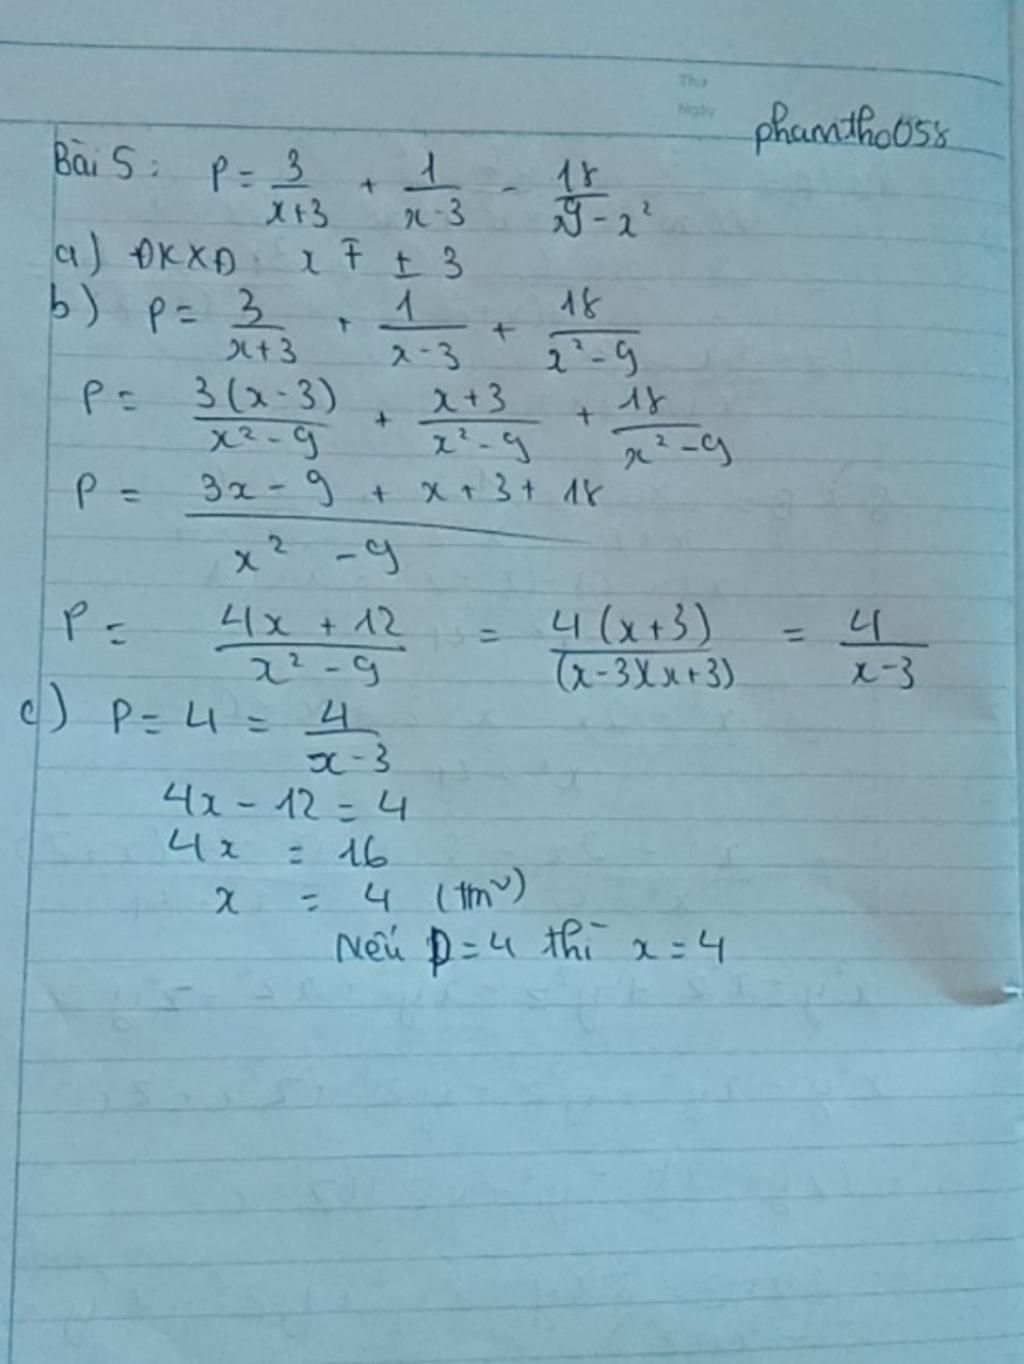 Thứ
Ngày
phamtho058
Bài 5: P = 3/(x+3) + 1/(x-3) - 18/(9-x²)
a) ĐKXĐ x ≠ ± 3
b) P = 3/(x+3) + 1/(x-3) + 18/(x²-9)
P = 3(x-3)/(x²-9) + (x+3)/(x²-9) + 18/(x²-9)
P = (3x-9 + x+3+18)/(x²-9)
P = (4x+12)/(x²-9) = 4(x+3)/((x-3)(x+3)) = 4/(x-3)
c) P = 4 = 4/(x-3)
4x - 12 = 4
4x = 16
x = 4 (tm)
Nếu P = 4 thì x = 4